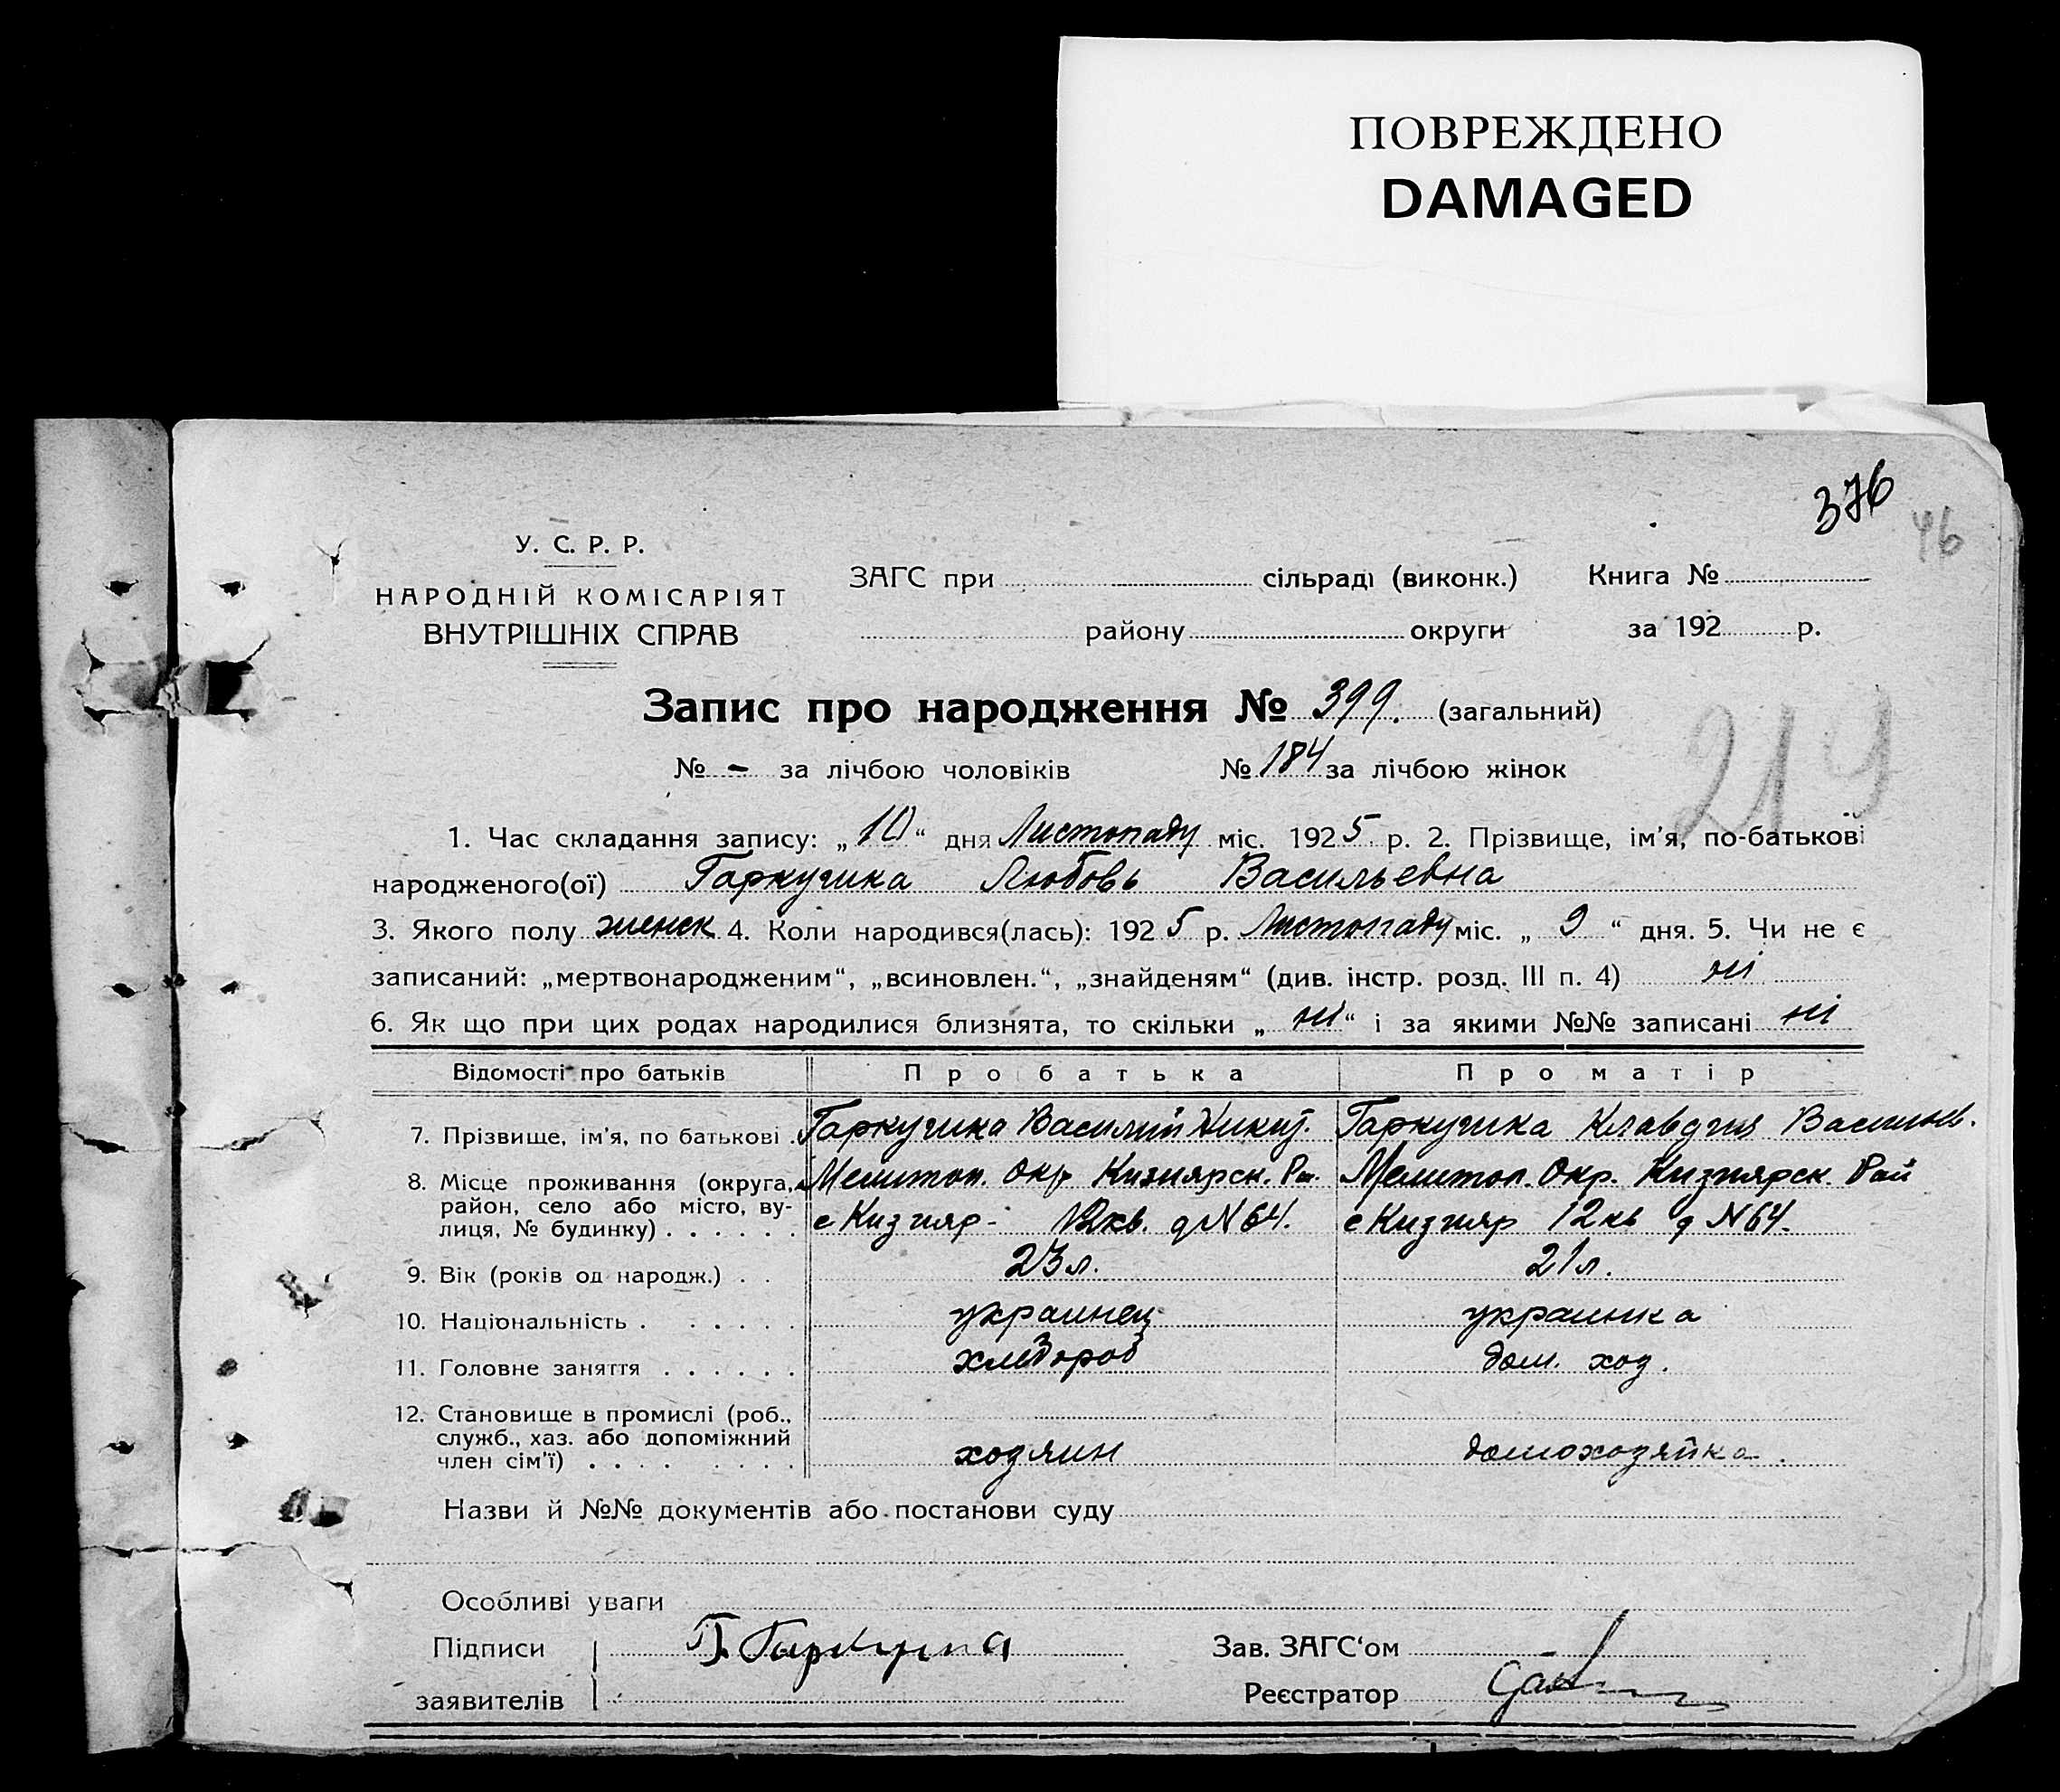 ПОВРЕЖДЕНО
DAMAGED
376
46
У. С. Р. Р.
НАРОДНІЙ КОМІСАРІЯТ
ВНУТРІШНІХ СПРАВ
ЗАГС при сільраді (виконк.) Книга №
району округи за 192 р.
Запис про народження № 399. (загальний)
№ - за лічбою чоловіків № 184 за лічбою жінок
219
1. Час складання запису: „10“ дня Листопаду міс. 1925 р. 2. Прізвище, ім'я, по-батькові
народженого(ої) Гаркушка Любовь Васильевна
3. Якого полу женск 4. Коли народився(лась): 1925 р. Листопаду міс. „9“ дня. 5. Чи не є
записаний: „мертвонародженим“, „всиновлен.“, „знайденям“ (див. інстр. розд. III п. 4) ні
6. Як що при цих родах народилися близнята, то скільки „ні“ і за якими №№ записані ні
Відомості про батьків Про батька Про матір
7. Прізвище, ім'я, по батькові Гаркушка Василий Никит. Гаркушка Клавдия Васильев.
8. Місце проживання (округа, Мелитоп. Окр Кизиярск. Ра. Мелитоп. Окр. Кизиярск. Рай
район, село або місто, ву-
лиця, № будинку) с Кизияр - 12кв. д N 64. с Кизияр 12 кв д N 64.
9. Вік (років од народж.) 23 л. 21 л.
10. Національність украинец украинка
11. Головне заняття хлебороб дом. хоз.
12. Становище в промислі (роб.,
служб., хаз. або допоміжний
член сім'ї) хозяин домохозяйка
Назви й №№ документів або постанови суду
Особливі уваги
Підписи Зав. ЗАГС'ом
заявителів Реєстратор